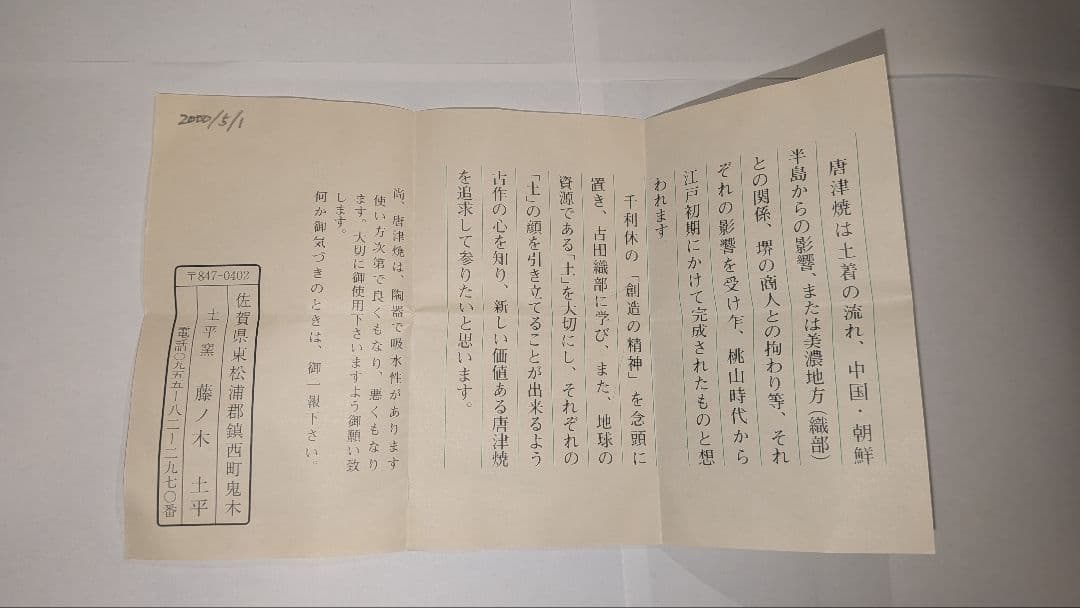 唐津焼は土着の流れ、中国・朝鮮
半島からの影響、または美濃地方（織部）
との関係、堺の商人との拘わり等、それ
ぞれの影響を受け乍、桃山時代から
江戸初期にかけて完成されたものと想
われます
千利休の「創造の精神」を念頭に
置き、古田織部に学び、また、地球の
資源である「土」を大切にし、それぞれの
「土」の顔を引き立てることが出来るよう
古作の心を知り、新しい価値ある唐津焼
を追求して参りたいと思います。
尚、唐津焼は、陶器で吸水性があります
使い方次第で良くもなり、悪くもなり
ます。大切に御使用下さいますよう御願い致
します。
何か御気づきのときは、御一報下さい。
2000/5/1
〒847-0402
佐賀県東松浦郡鎮西町鬼木
土平窯 藤ノ木 土平
電話〇九五五－八二－二九七〇番